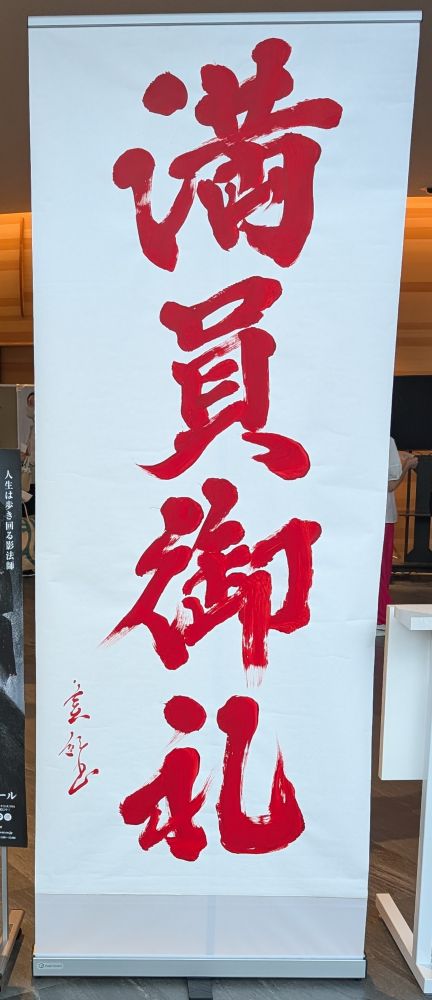 満員御礼
人生は歩き回る影法師
ール